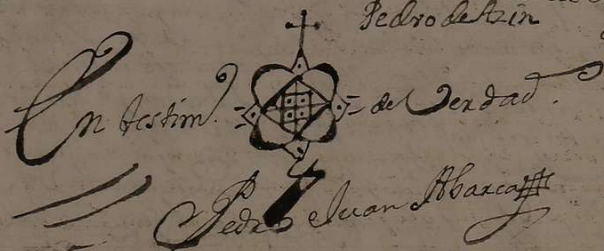 Pedro de Azin
En testim.º de Verdad.
Pedro Juan Abarca